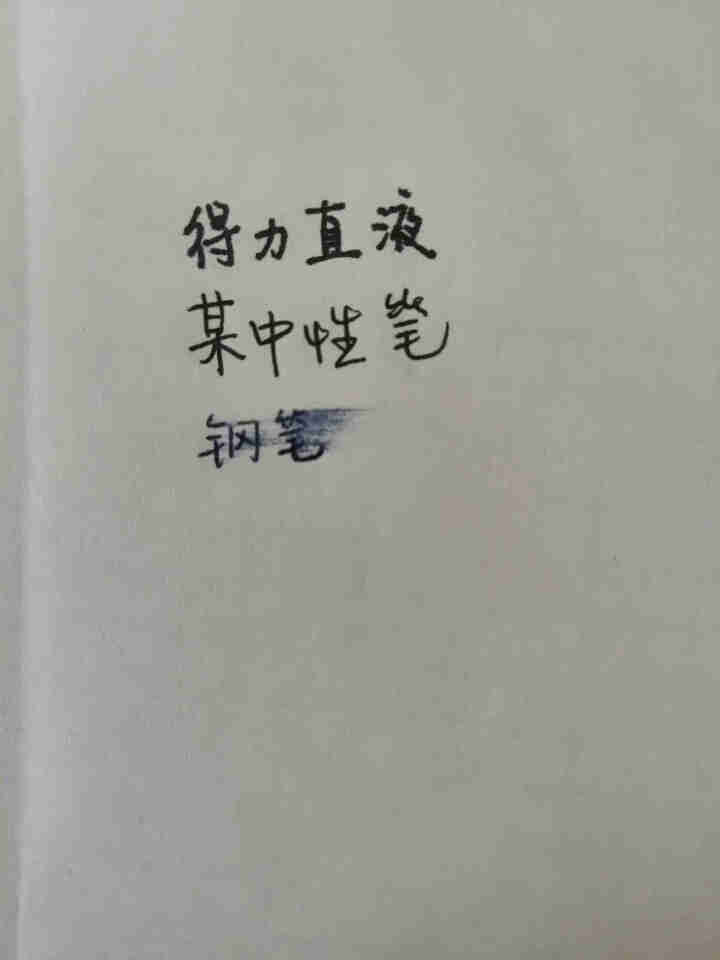 得力直液
某中性笔
钢笔